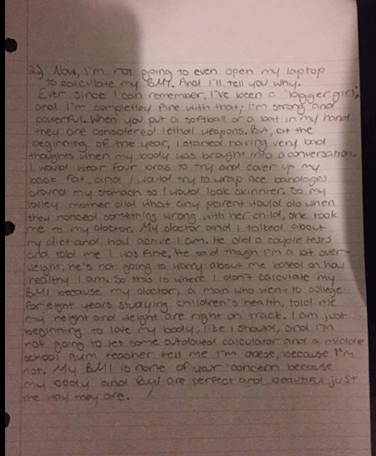 22) Now, I'm not going to even open my laptop
to calculate my BMI. And I'll tell you why.
Ever since I can remember, I've been a "bigger girl",
and I'm completley fine with that; I'm strong and
powerful. When you put a softball or a bat in my hand
they are considered lethal weapons. But, at the
beginning of the year, I started having very bad
thoughts when my body was brought into a conversation.
I would wear four bras to try and cover up my
back fat, and I would try to wrap ace bandages
around my stomach so I would look skinnier. So my
lovley mother did what any parent would do when
they noticed something wrong with her child, she took
me to my doctor. My doctor and I talked about
my diet and how active I am. He did a couple tests
and told me I was fine. He said though I'm a bit over-
weight, he's not going to worry about me based on how
healthy I am. So this is where I don't calculate my
BMI because my doctor, a man who went to college
for eight years studying children's health, told me
my height and weight are right on track. I am just
beginning to love my body, like I should, and I'm
not going to let some outdated calculator and a middle
school gym teacher tell me I'm obese, because I'm
not. My BMI is none of your concern because
my body and BMI are perfect and beautiful just
the way they are.